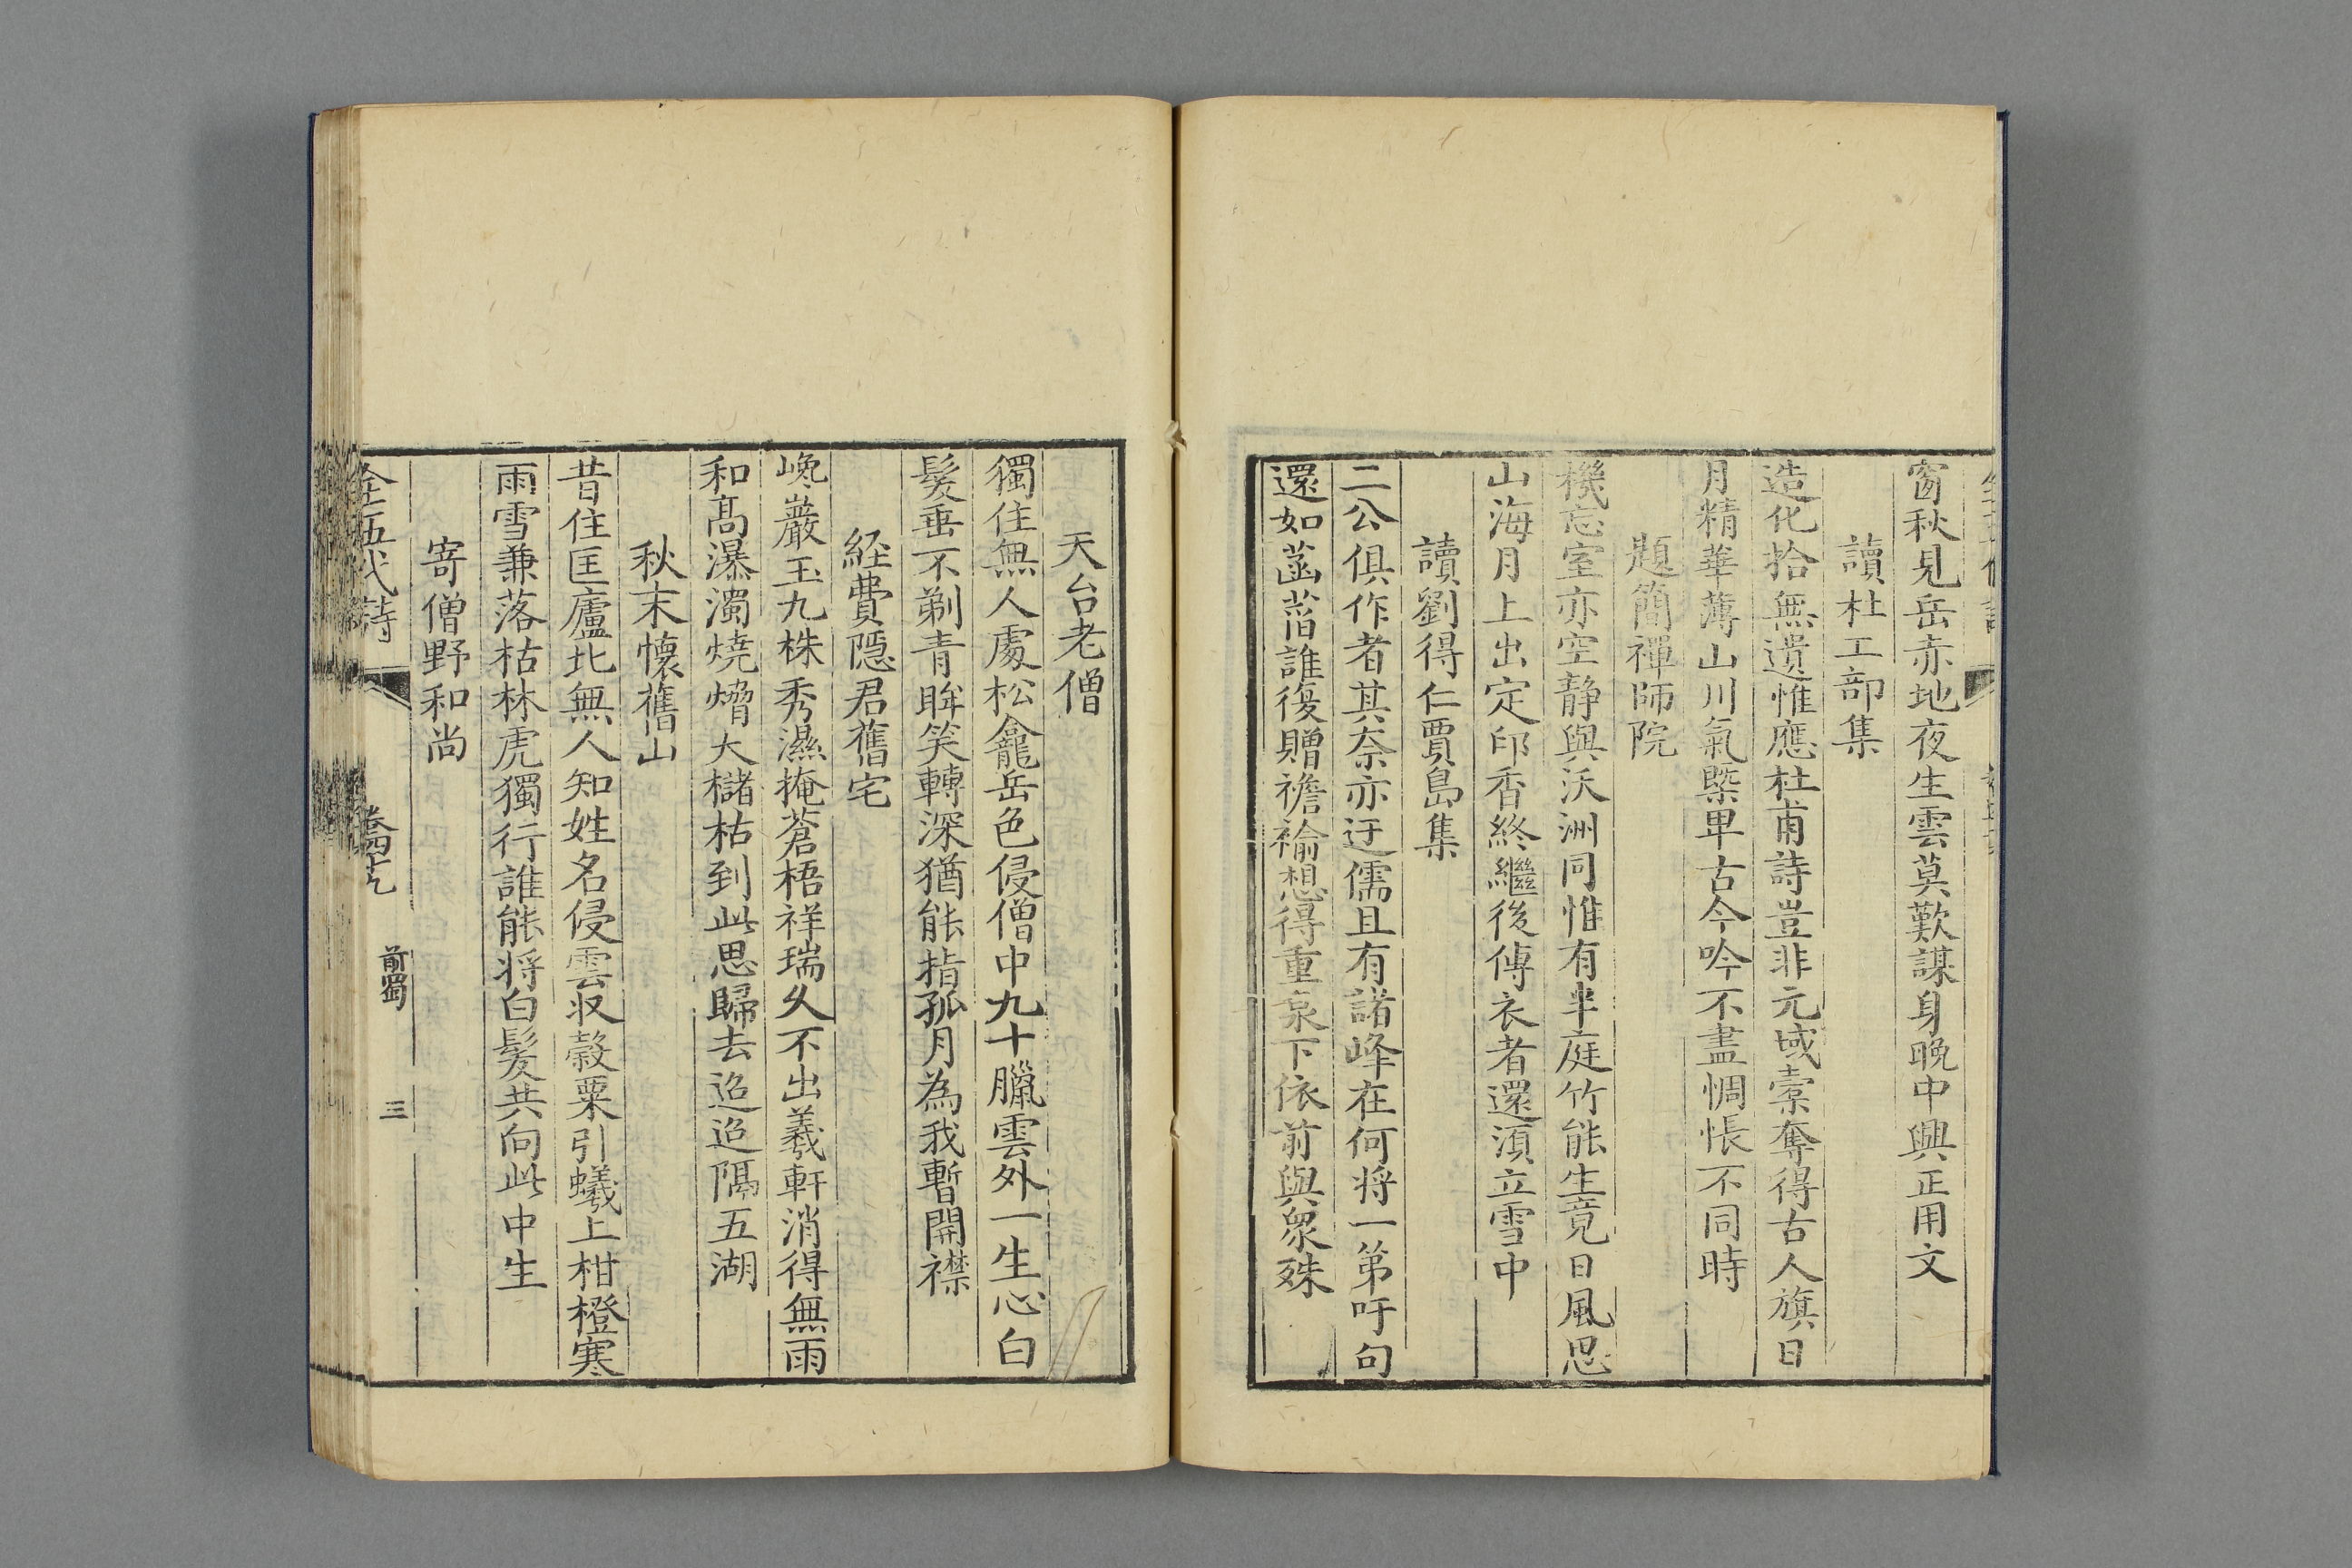 窗秋見岳赤地夜生雲莫歎謀身晚中興正用文
讀杜工部集
造化拾無遺惟應杜甫詩豈非元域橐奪得古人旗日
月精華薄山川氣槩卑古今吟不盡惆悵不同時
題簡禪師院
機忘室亦空静與沃洲同惟有半庭竹能生竟日風思
山海月上出定印香終繼後傳衣者還湏立雪中
讀劉得仁賈島集
二公俱作者其奈亦迂儒且有諸峰在何將一第吁句
還如菡萏誰復贈襜褕想得重泉下依前與衆殊
天台老僧
獨住無人處松龕岳色侵僧中九十臘雲外一生心白
髮垂不剃青眸笑轉深猶能指孤月為我暫開襟
経費隱君舊宅
巉巖玉九株秀濕掩蒼梧祥瑞久不出羲軒消得無雨
和高瀑濁燒熁大櫧枯到此思歸去迢迢隔五湖
秋末懷舊山
昔住匡廬北無人知姓名侵雲収穀粟引蟻上柑橙寒
雨雪兼落枯林虎獨行誰能将白髮共向此中生
寄僧野和尚
全五代詩
卷四十九
前蜀
三